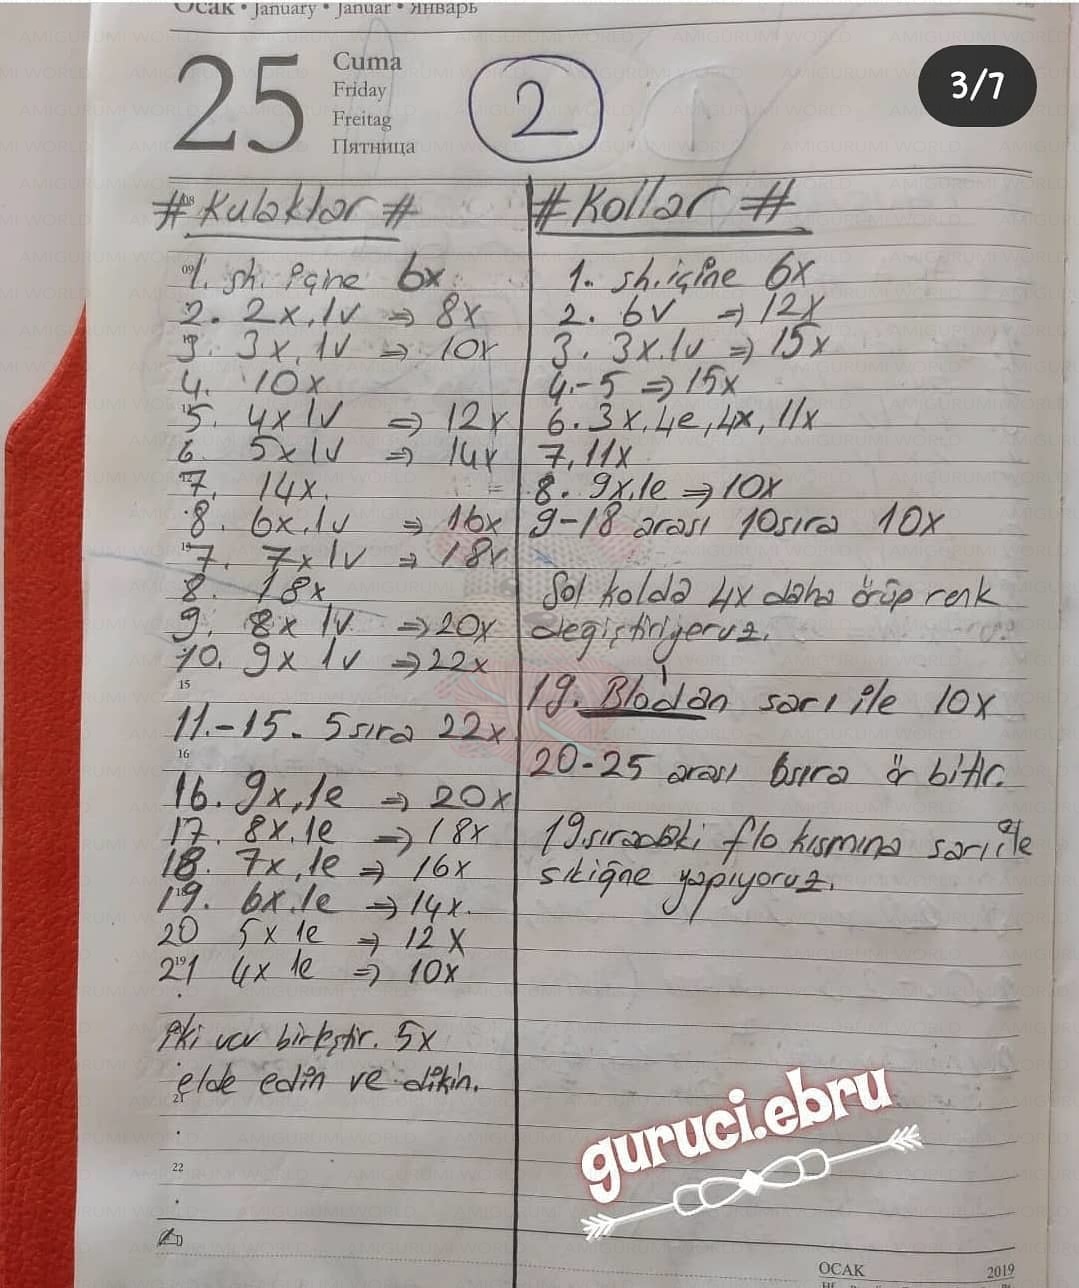 Ocak • January • Januar • Январь
25
Cuma
Friday
Freitag
Пятница
2
1
3/7
#Kulaklar#
1. sh. içine 6x
2. 2x,1v => 8x
3. 3x,1v => 10x
4. 10x
5. 4x 1v => 12x
6. 5x 1v => 14x
7. 14x.
8. 6x,1v => 16x
7. 7x 1v => 18x
8. 18x
9. 8x 1v => 20x
10. 9x 1v => 22x
15
11.-15. 5 sıra 22x
16
16. 9x,1e => 20x
17. 8x.1e => 18x
18. 7x,1e => 16x
19. 6x.1e => 14x.
20 5x 1e => 12x
21 4x 1e => 10x
iki ucu birleştir. 5x
elde edin ve dikin.
21
22
#Kollar#
1. sh.içine 6x
2. 6v => 12x
3. 3x.1v => 15x
4.-5 => 15x
6. 3x,4e,4x,11x
7, 11x
8. 9x,1e => 10x
9-18 arası 10sıra 10x
Sol kolda 4x daha örüp renk
değiştiriyoruz.
19. Blodan sarı ile 10x
20-25 arası 6sıra ör bitir.
19.sıradaki flo kısmına sarı ile
sıkiğne yapıyoruz.
guruci.ebru
OCAK 2019